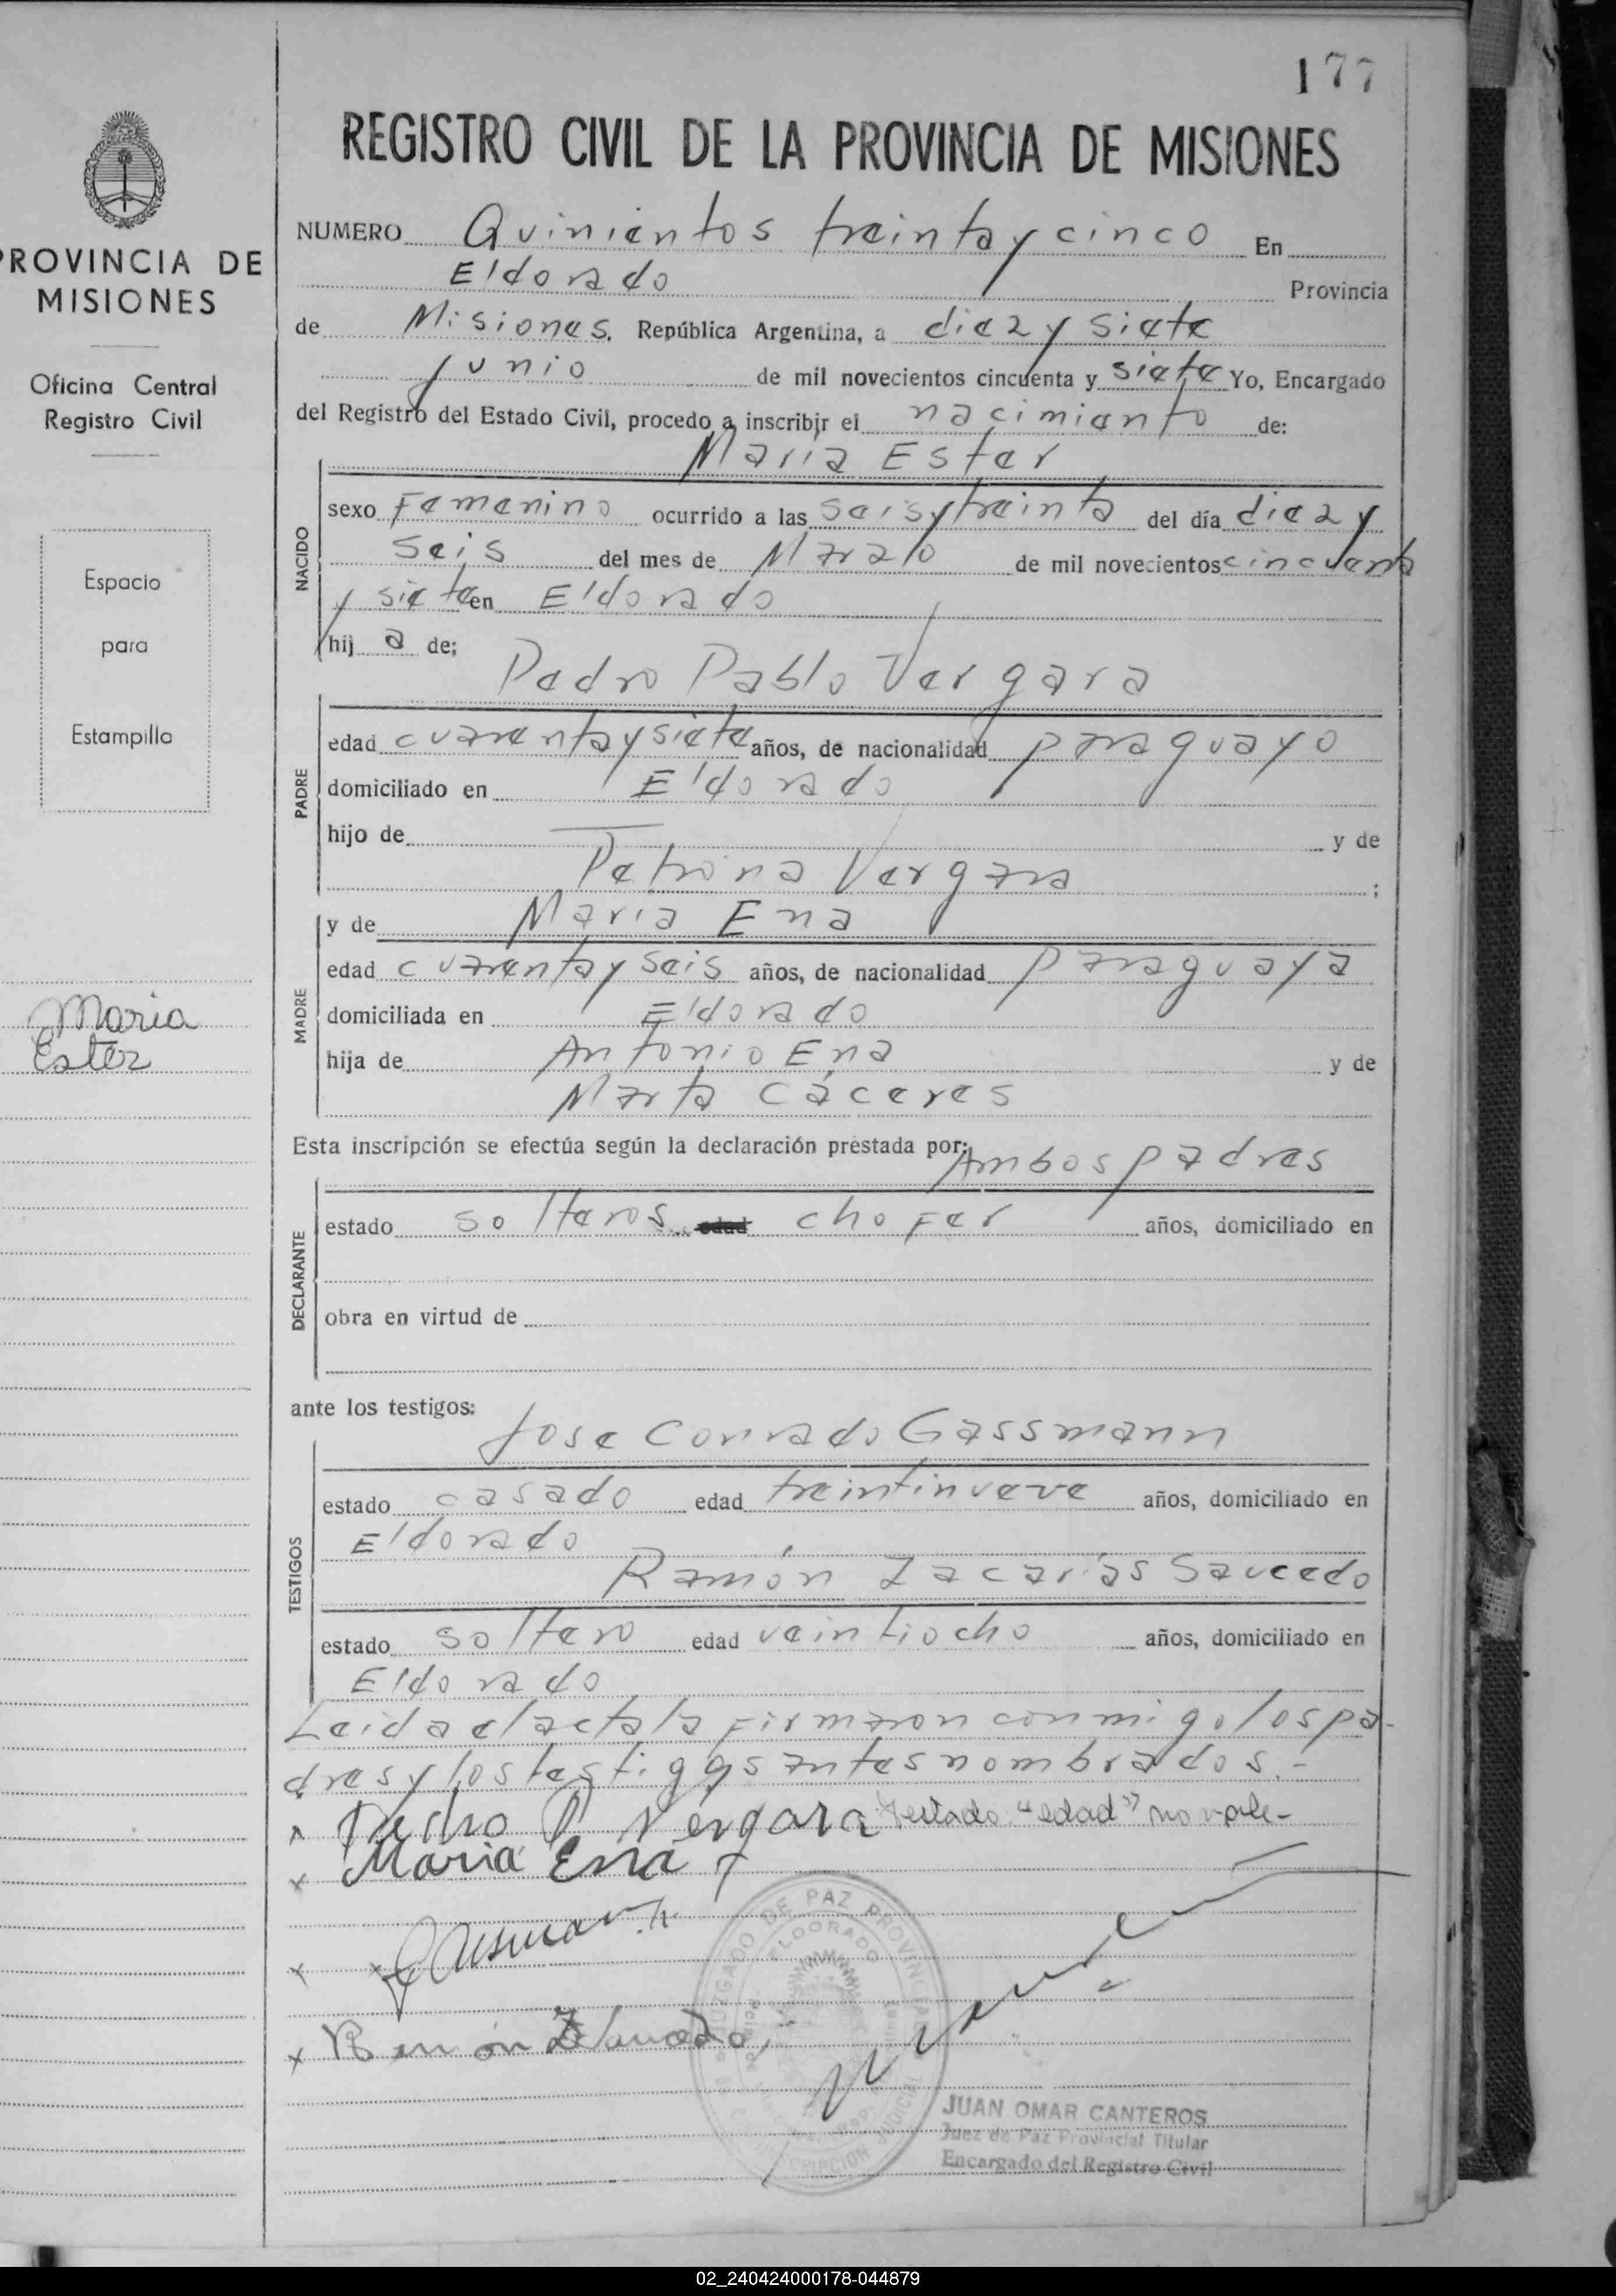 177
REGISTRO CIVIL DE LA PROVINCIA DE MISIONES
PROVINCIA DE
MISIONES
Oficina Central
Registro Civil
Espacio
para
Estampilla
Maria
Ester
NUMERO Quinientos treinta y cinco En
Eldorado Provincia
de Misiones. República Argentina, a diez y siete
junio de mil novecientos cincuenta y siete Yo, Encargado
del Registro del Estado Civil, procedo a inscribir el nacimiento de:
María Ester
NACIDO
sexo Femenino ocurrido a las seis y treinta del día diez y
seis del mes de Marzo de mil novecientos cincuenta
y siete en Eldorado
hij a de;
Pedro Pablo Vergara
PADRE
edad cuarenta y siete años, de nacionalidad paraguayo
domiciliado en Eldorado
hijo de y de
Petrona Vergara ;
y de María Ena
MADRE
edad cuarenta y seis años, de nacionalidad paraguaya
domiciliada en Eldorado
hija de Antonio Ena y de
Marta Cáceres
Esta inscripción se efectúa según la declaración prestada por: Ambos padres
DECLARANTE
estado solteros edad chofer años, domiciliado en
obra en virtud de
ante los testigos:
Jose Conrado Gassmann
TESTIGOS
estado casado edad treintinueve años, domiciliado en
Eldorado
Ramón Zacarías Saucedo
estado soltero edad veintiocho años, domiciliado en
Eldorado
Leida el acta la firmaron conmigo los pa-
dres y los testigos antes nombrados.-
x Pedro P Vergara Testado: "edad" no vale-
x Maria Ena
x Gassmann
x Ramón Z Saucedo
JUZGADO DE PAZ PROVINCIAL
ELDORADO
CIRCUNSCRIPCION JUDICIAL
JUAN OMAR CANTEROS
Juez de Paz Provincial Titular
Encargado del Registro Civil
02_240424000178-044879